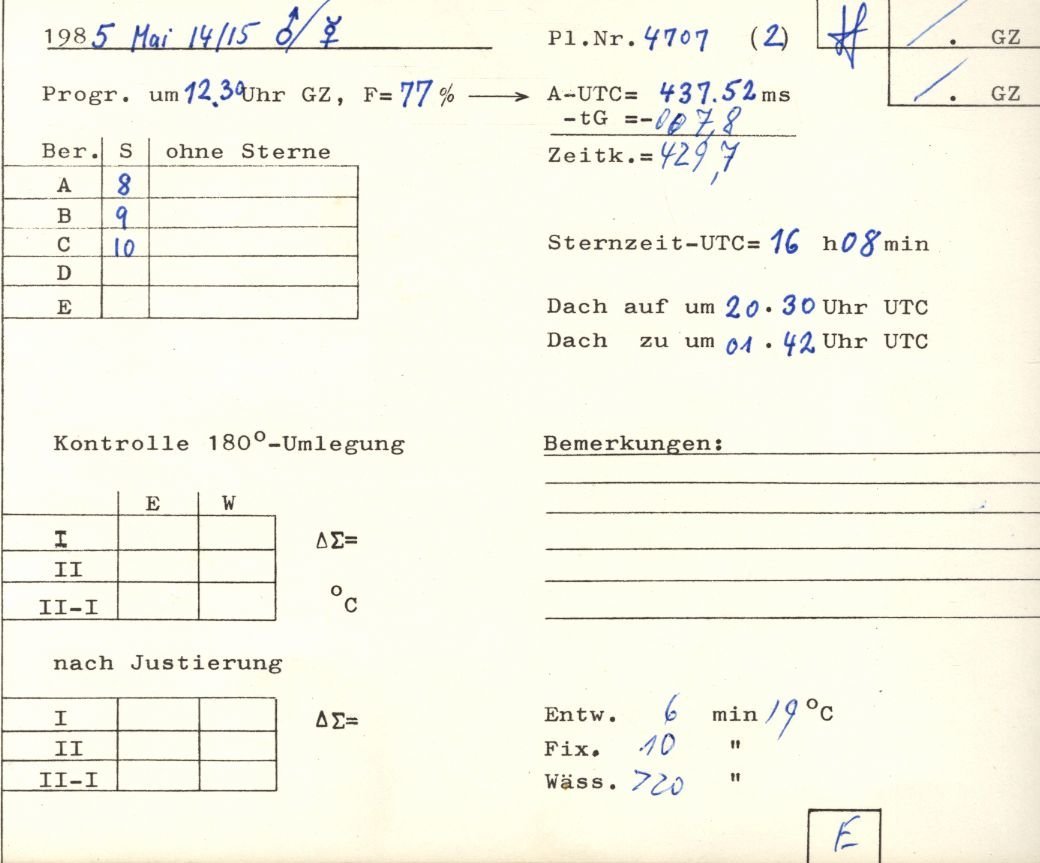 1985 Mai 14/15 ♂/☿ Pl.Nr. 4707 (2) . GZ
Progr. um 12.30 Uhr GZ, F= 77 % → A-UTC= 437.52 ms . GZ
-tG =-007,8
Ber. S ohne Sterne Zeitk.= 429,7
A 8
B 9
C 10 Sternzeit-UTC= 16 h 08 min
D
E Dach auf um 20.30 Uhr UTC
Dach zu um 01.42 Uhr UTC
Kontrolle 180°-Umlegung Bemerkungen:
E W
I ΔΣ=
II
II-I °C
nach Justierung
I ΔΣ= Entw. 6 min 19 °C
II Fix. 10 "
II-I Wäss. >20 "
E